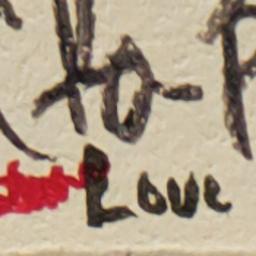 to p
Love